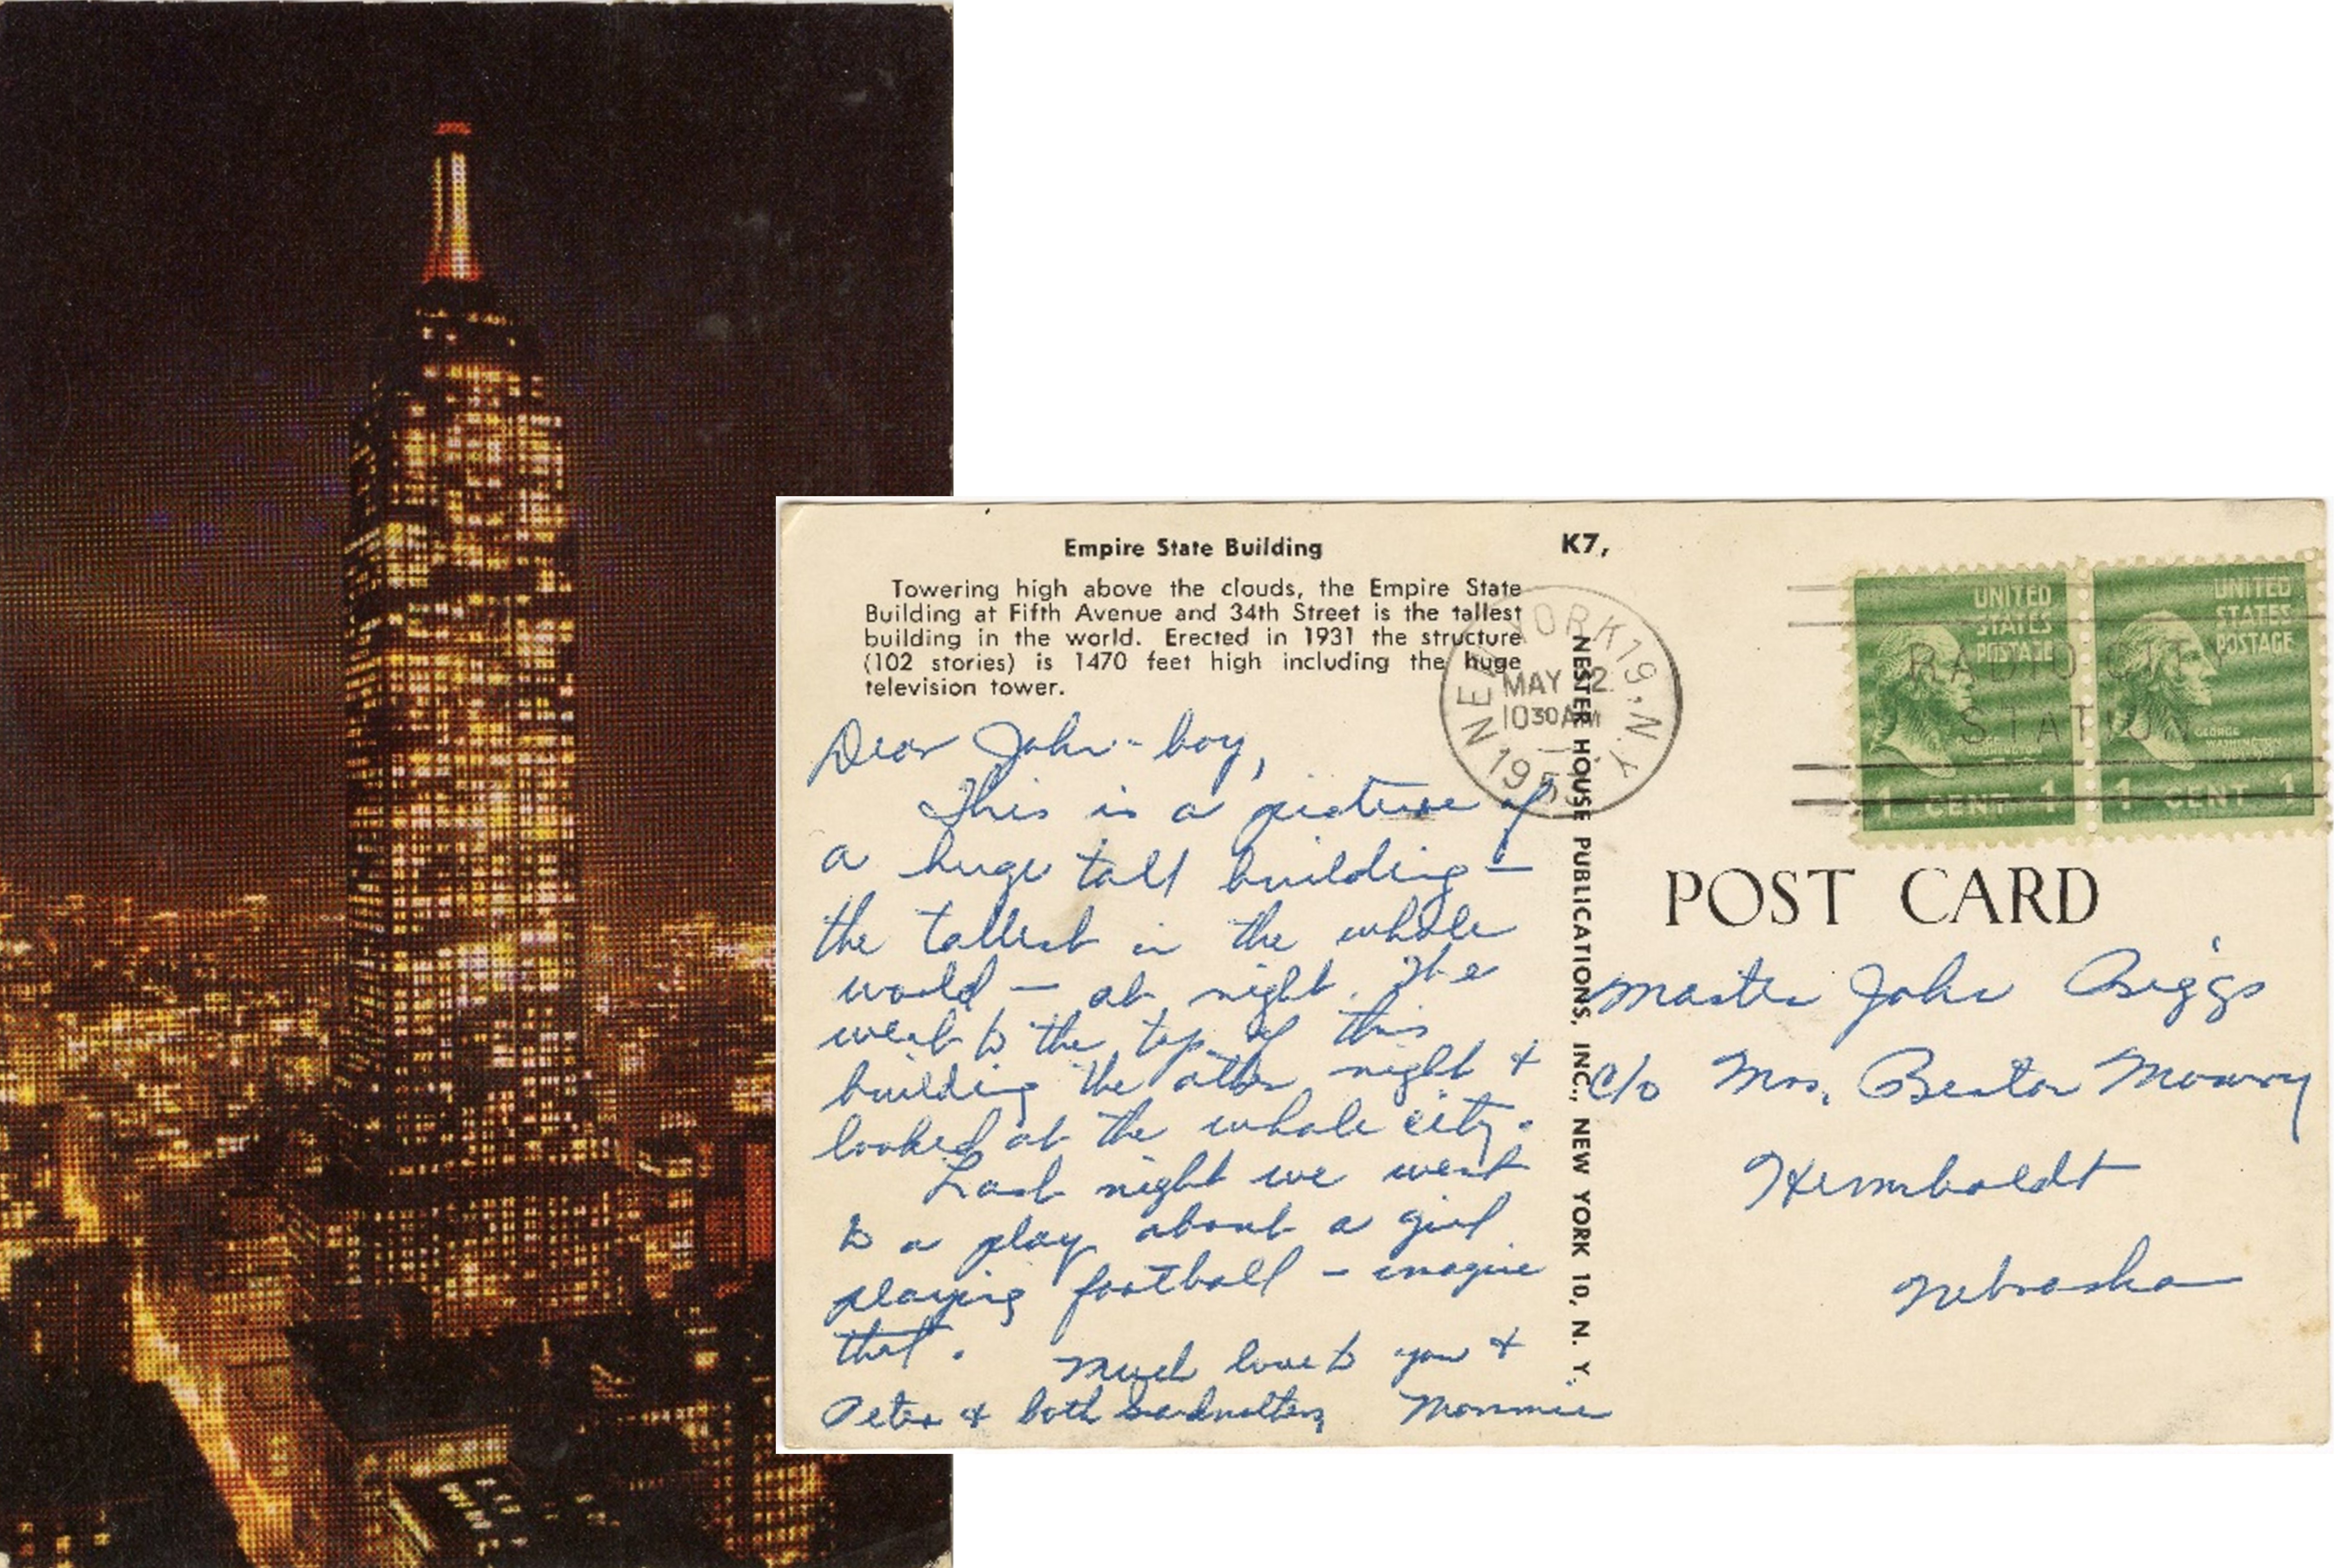 Empire State Building
Towering high above the clouds, the Empire State
Building at Fifth Avenue and 34th Street is the tallest
building in the world. Erected in 1931 the structure
(102 stories) is 1470 feet high including the huge
television tower.
Dear John-boy,
This is a picture of
a huge tall building —
the tallest in the whole
world — at night. We
went to the top of this
building the other night &
looked at the whole city.
Last night we went
to a play about a girl
playing football - imagine
that.
Much love to you &
Peter & both Grandmothers Mommie
K7,
NESTER HOUSE PUBLICATIONS, INC., NEW YORK 10, N. Y.
NEW YORK 19, N.Y.
MAY 12
10 30 AM
195
RADIO CITY
STATION
UNITED
STATES
POSTAGE
1 CENT 1
UNITED
STATES
POSTAGE
GEORGE
WASHINGTON
1 CENT 1
POST CARD
Master John Briggs
c/o Mrs. Mowry
Humboldt
Nebraska